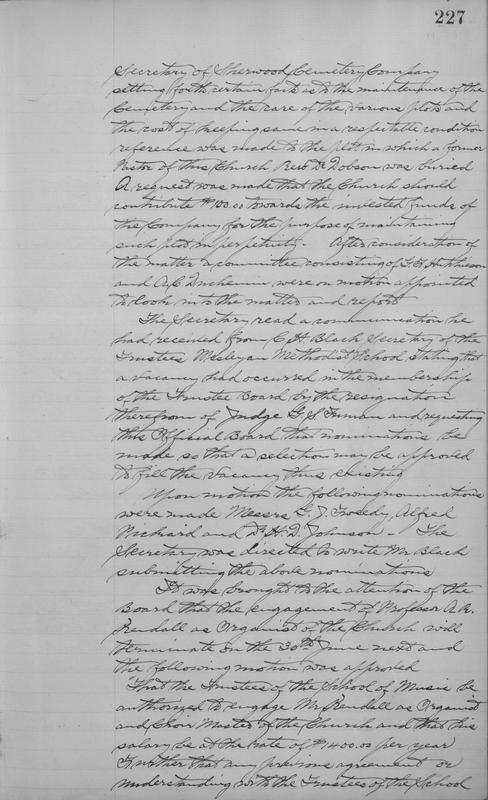 227
Secretary of Sherwood Cemetery Company
setting forth certain facts as to the maintenance of the
Cemetery and the care of the various plots and
the cost of keeping same in a respectable condition
reference was made to the plot in which a former
Pastor of this Church Rev Dr Dobson was buried
A request was made that the Church should
contribute $100.00 towards the invested funds of
the Company for the purpose of maintaining
such plot in perpetuity. After consideration of
the matter a committee consisting of Hutcheson
and A.C. Duchemin were on motion appointed
to look into the matter and report
The Secretary read a communication he
had received from C.H. Black Secretary of the
Trustees Wesleyan Methodist School stating that
a vacancy had occurred in the membership
of the Trustee Board by the resignation
therefrom of Judge G.S. Inman and requesting
this Official Board that nominations be
made so that a selection may be approved
to fill the vacancy thus existing
Upon motion the following nominations
were made Messrs Alfred
Prichard and Dr H.D. Johnson - The
Secretary was directed to write Mr Black
submitting the above nominations
It was brought to the attention of the
Board that the engagement of Professor A.R.
Rendall as Organist of the Church will
terminate on the 30th June next and
the following motion was approved
That the Trustees of the School of Music be
authorized to engage Mr Rendall as Organist
and Choir Master of the Church and that his
salary be at the rate of $1400.00 per year
Further that any previous agreement or
understanding with the Trustees of the School